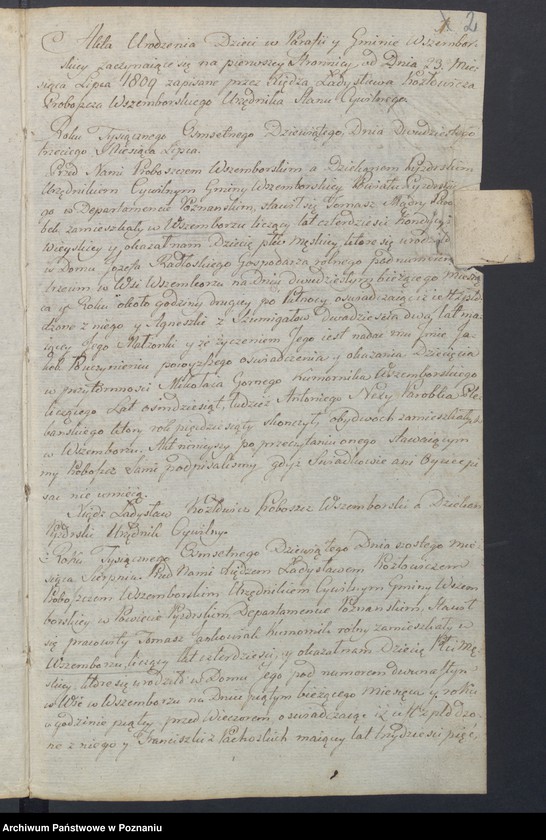 2
Akta Urodzenia Dzieci w Parafii y Gminie Wszembor-
skiey zaczynaiące się na pierwszey Stronnicy, od Dnia 23. Mie-
siąca Lipca 1809 zapisane przez Xiędza Ladysława Kozłowicza
Proboszcza Wszemborskiego Urzędnika Stanu Cywilnego.
Roku Tysiącznego Osmsetnego Dziewiątego, Dnia Dwudziestego
trzeciego Miesiąca Lipca.
Przed Nami Proboszczem Wszemborskim a Dziekanem Pyzdrskim
Urzędnikiem Cywilnym Gminy Wszemborskiey Powiatu Pyzdrskie-
go w Departamencie Poznanskim, stawił się Tomasz Paro-
bek zamieszkały w Wszemborzu liczący lat czterdzieści Kondycyi
Wieyskiey y okazał nam Dziecię płci męskiey, które się urodziło
w Domu Jozefa Gospodarza rolnego pod numerem
trzecim w Wsi Wszemborzu na Dniu dwudziestym bieżącego Miesią-
ca y Roku około godziny drugiey po Pułnocy oswiadczaiąc iż jest spło-
dzone z niego y Agneszki z Szumigałow Dwadzieścia dwa, lat ma-
iącey Jego Małżonki y że życzeniem Jego iest nadać mu Imie Ja-
kob Po uczynieniu powyższego oswiadczenia y okazania Dziecięcia
w przytomności Mikołaia Gornego Komornika Wszemborskiego
liczącego Lat osmdziesiąt, tudzież Antoniego Parobka Ple-
banskiego który rok pięćdziesiąty skonczył, obydwoch zamieszkałych
w Wszemborzu, Akt ninieyszy po przeczytaniu onego stawaiącym
my Proboszcz Sami podpisalismy gdyż Swiadkowie ani Oyciec pi-
sać nie umieią.
Xiądz Ladysław Kozłowicz Proboszcz Wszemborski a Dziekan
Pyzdrski Urzędnik Cywilny.
Roku Tysiącznego Osmsetnego Dziewiątego Dnia szostego mie-
siąca Sierpnia Przed Nami Xiędzem Ladysławem Kozłowiczem
Proboszczem Wszemborskim Urzędnikiem Cywilnym Gminy Wszem
borskiey w Powiecie Pyzdrskim Departamencie Poznanskim, Stawił
się pracowity Tomasz Komornik rolny zamieszkały w
Wszemborzu, liczący lat czterdzieści, y okazał nam Dziecię Płci mę-
skiey, które się urodziło w Domu Jego pod numerem dwunastym
w Wsi w Wszemborzu na Dniu piątym bieżącego miesiąca y roku
o godzinie piątey przed Wieczorem, oswiadczaiąc iż jest spłodzo-
ne z niego y Franciszki z maiącey lat trzydzieści pięć,
Archiwum Państwowe w Poznaniu